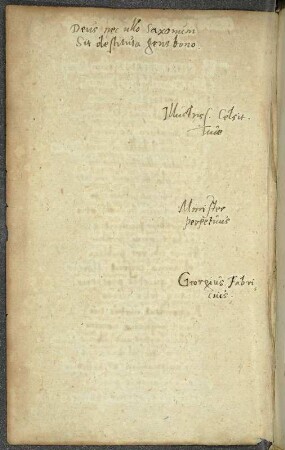 Deus nec ullo Saxonum
Sit destituta gens bono.
Illustris. Celsit.
Tuae
Minister
perpetuus
Georgius Fabri
cius.